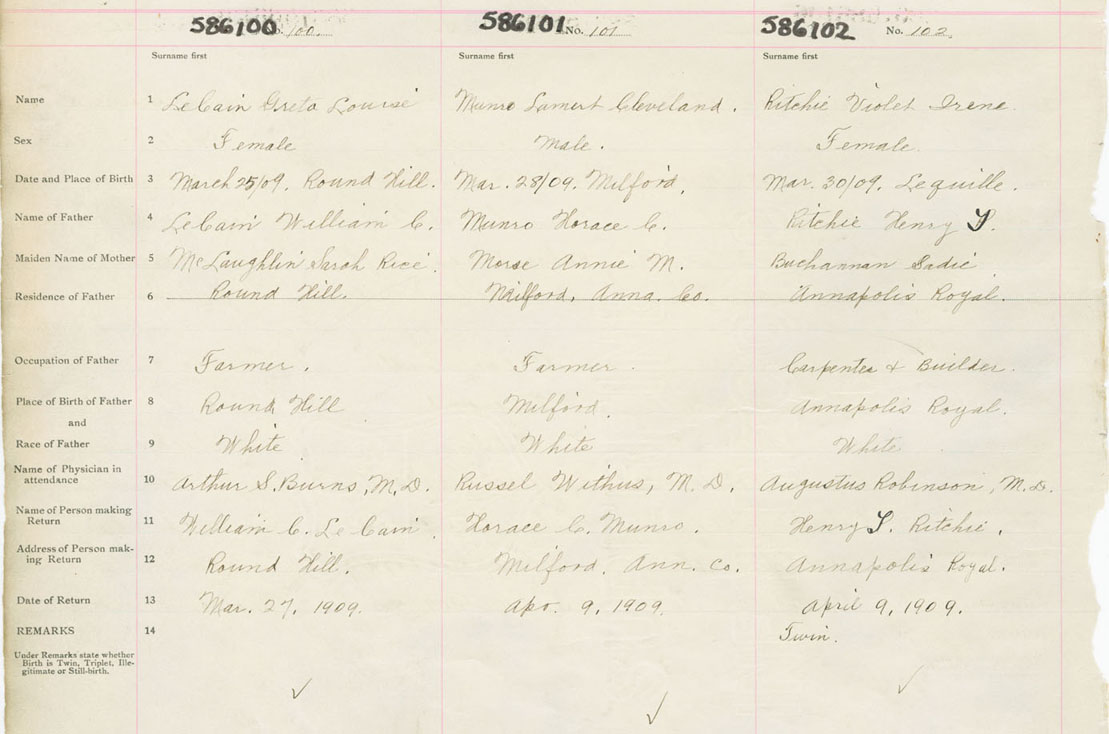 586100 No. 100. 586101 No. 101 586102 No. 102
Surname first Surname first Surname first
Name 1 LeCain Greta Louise Munro Lamert Cleveland. Ritchie Violet Irene.
Sex 2 Female Male. Female.
Date and Place of Birth 3 March 25/09. Round Hill. Mar. 28/09. Milford. Mar. 30/09. Lequille.
Name of Father 4 LeCain William C. Munro Horace C. Ritchie Henry S.
Maiden Name of Mother 5 McLaughlin Sarah Rice. Morse Annie M. Buchannan Sadie
Residence of Father 6 Round Hill. Milford, Anna. Co. Annapolis Royal.
Occupation of Father 7 Farmer. Farmer. Carpenter & Builder.
Place of Birth of Father 8 Round Hill Milford. Annapolis Royal.
and
Race of Father 9 White White White
Name of Physician in
attendance 10 Arthur S. Burns, M.D. Russel Withus, M.D. Augustus Robinson, M.D.
Name of Person making
Return 11 William C. Le Cain. Horace C. Munro. Henry S. Ritchie.
Address of Person mak-
ing Return 12 Round Hill. Milford. Ann. Co. Annapolis Royal.
Date of Return 13 Mar. 27, 1909. Apr. 9, 1909. April 9, 1909.
REMARKS 14 Twin.
Under Remarks state whether
Birth is Twin, Triplet, Ille-
gitimate or Still-birth.